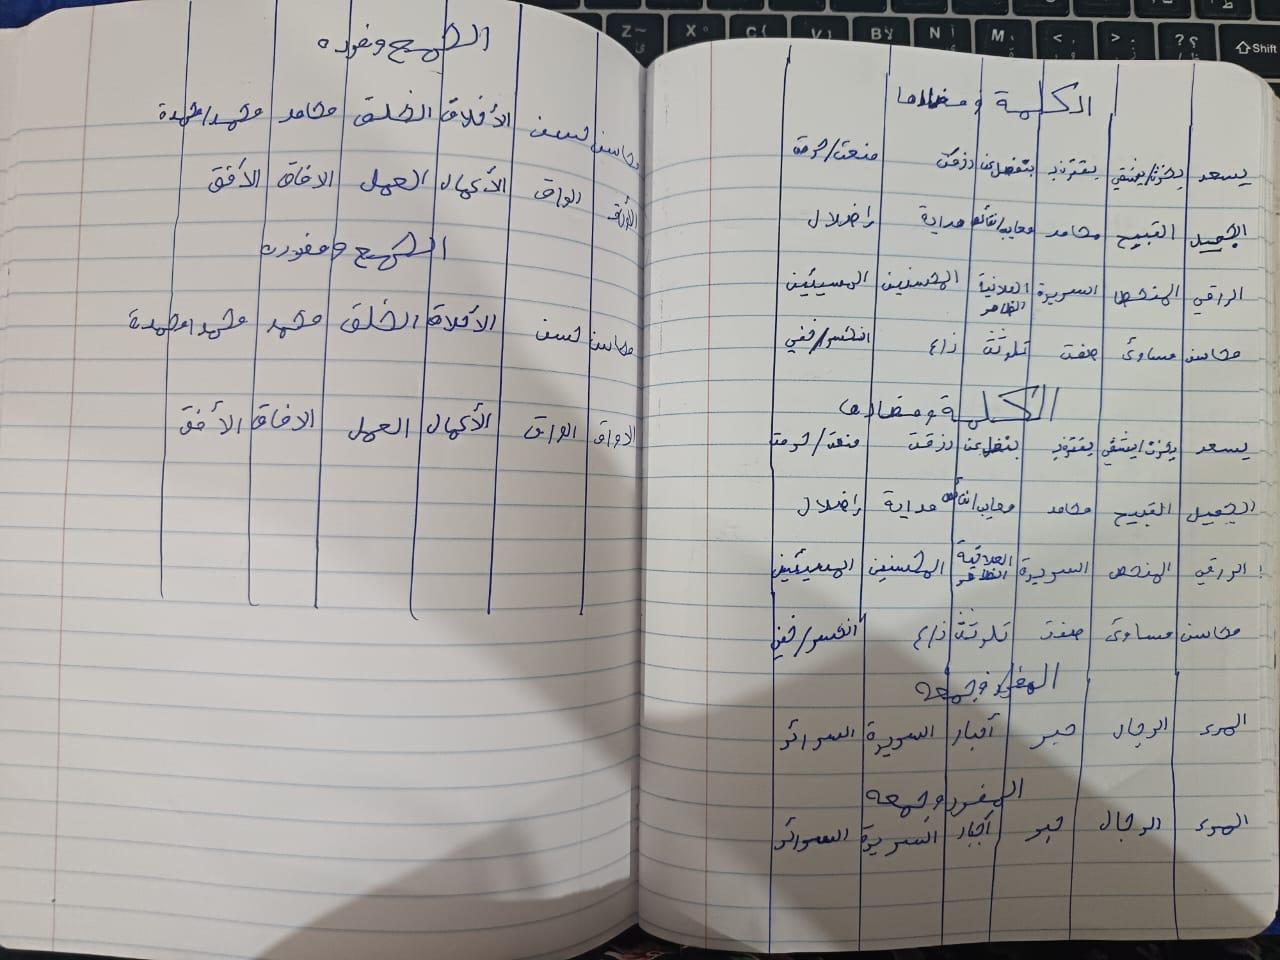 الكلمة ومضادها
يسعد يحزن/يشقي يقترن بـ يتفصل عن رزقت منعت/حرمت
الجميل القبيح محامد معايب/نقائص هداية إضلال
الراقي المنحط السريرة العلانية الظاهر المحسنين المسيئين
محاسن مساوئ صفت تلوثت ذاع انحسر/خفي
الكلمة ومضادها
يسعد يحزن/يشقي يقترن بـ يتفصل عن رزقت منعت/حرمت
الجميل القبيح محامد معايب/نقائص هداية إضلال
الراقي المنحط السريرة العلانية الظاهر المحسنين المسيئين
محاسن مساوئ صفت تلوثت ذاع انحسر/خفي
المفرد وجمعه
المرء الرجال خبر أخبار السريرة السرائر
المفرد وجمعه
المرء الرجال خبر أخبار السريرة السرائر
الجمع ومفرده
محاسن حسن الأخلاق الخلق محامد محمد/محمدة
الأعمال العمل الافاق الأفق
الجمع ومفرده
محاسن حسن الأخلاق الخلق محمد محمد/محمدة
الأعمال العمل الافاق الأفق
Z X C V B N M < > ? Shift